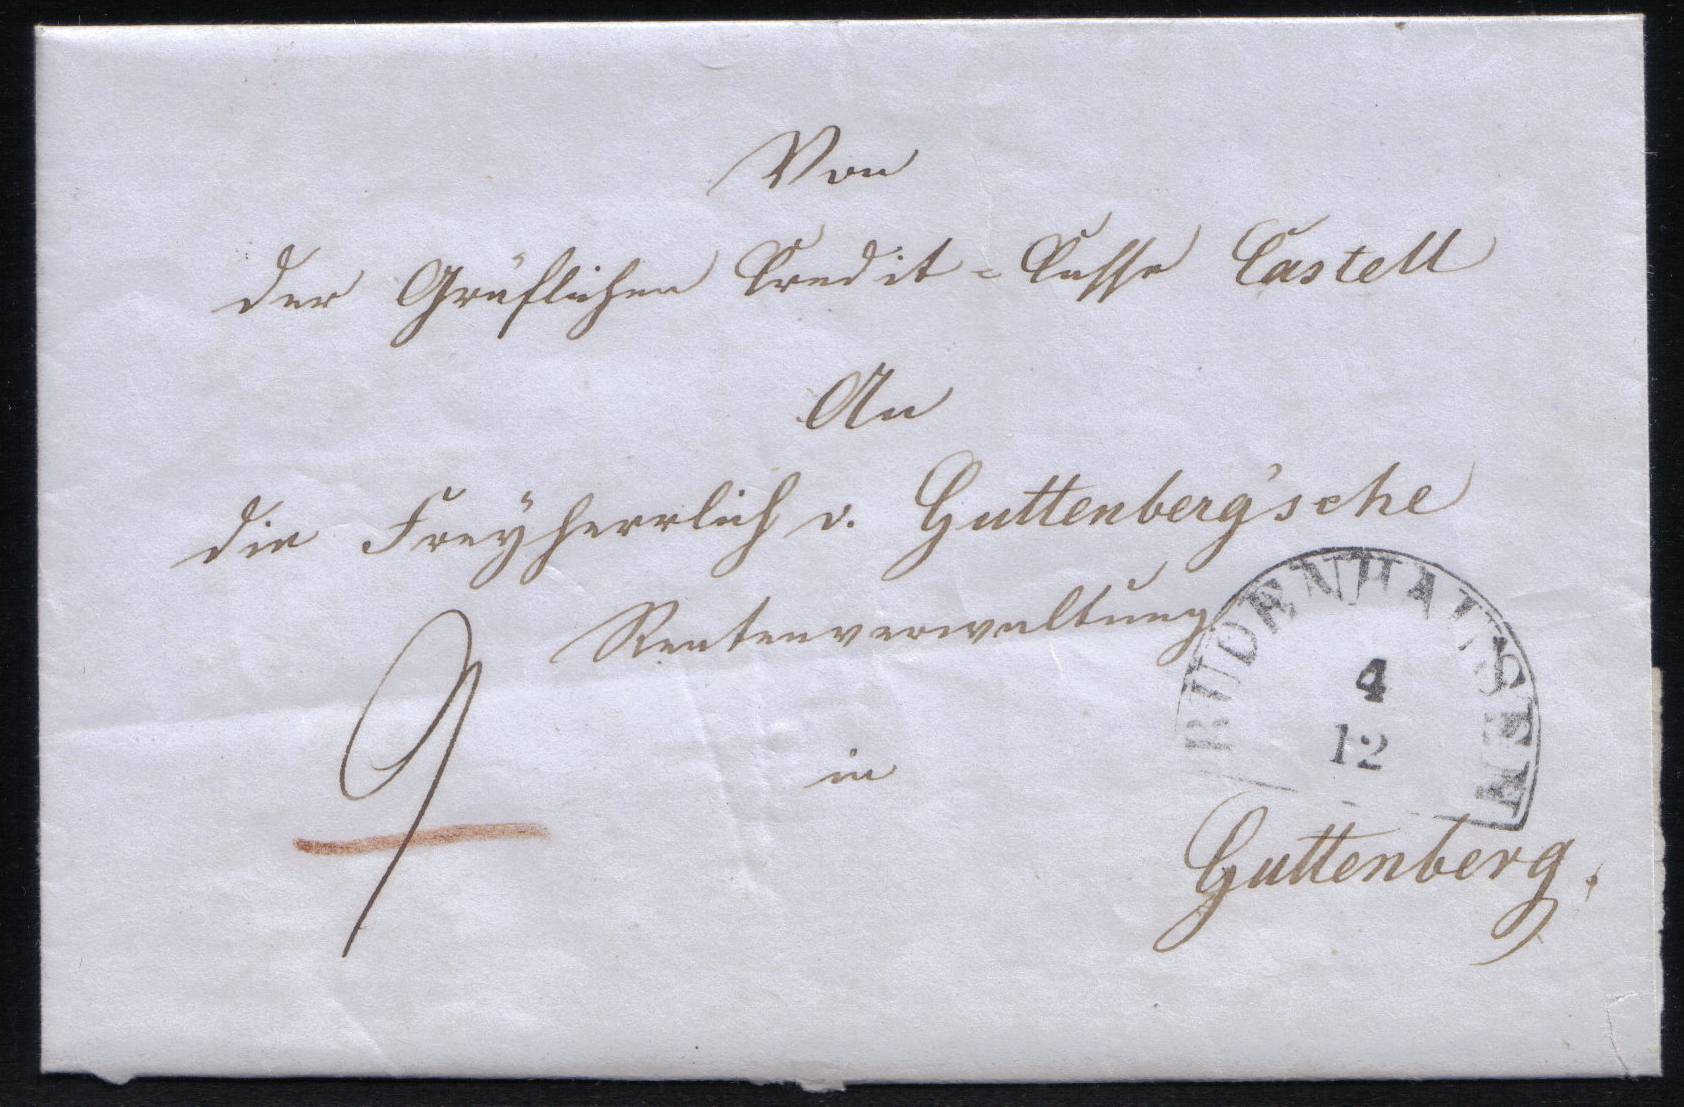 Von
der Gräflichen Credit-Casse Castell
An
die Freyherrlich v. Guttenberg'sche
Rentenverwaltung
RÜDENHAUSEN
4
12
9
in
Guttenberg.